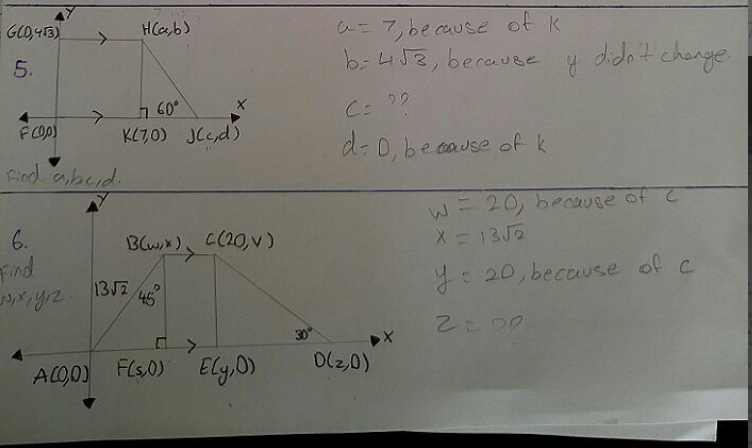 y
G(0,4√3) H(a,b)
5.
60°
x
F(0,0) K(7,0) J(c,d)
Find a,b,c,d.
a = 7, because of k
b = 4√3, because y didn't change.
c = ??
d = 0, because of k
y
6.
B(w,x) C(20,v)
Find
w,x,y,z.
13√2 45°
30°
x
A(0,0) F(s,0) E(y,0) D(z,0)
w = 20, because of c
x = 13√2
y = 20, because of c
z = ??